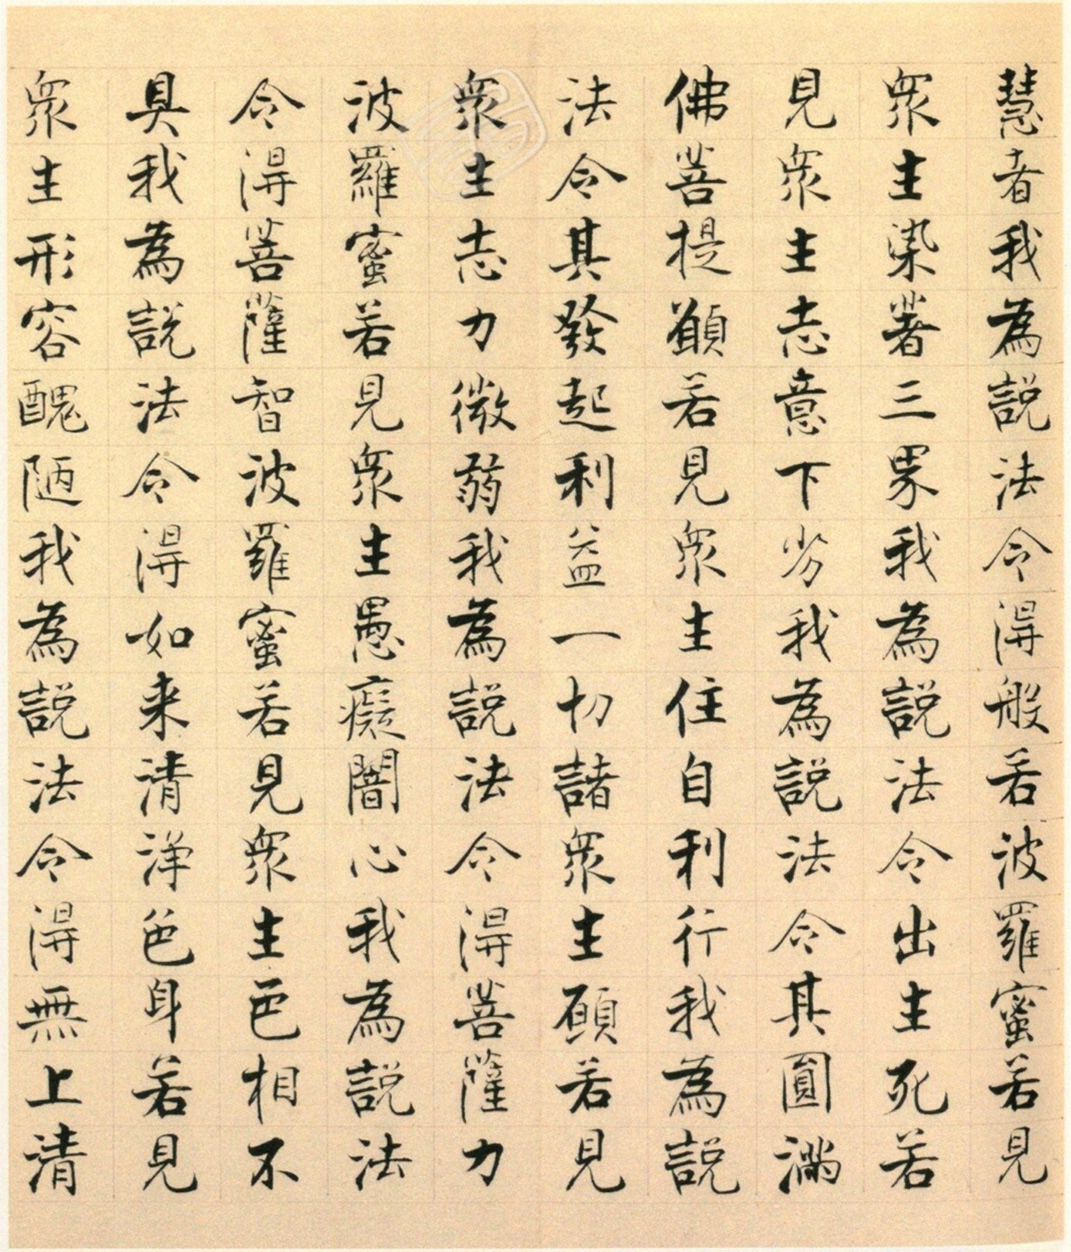 慧者我為説法令得般若波羅蜜若見
衆生染著三界我為說法令出生死若
見衆生志意下劣我為說法令其圓滿
佛菩提願若見衆生住自利行我為説
法令其發起利益一切諸衆生願若見
衆生志力微弱我為說法令得菩薩力
波羅蜜若見衆生愚癡闇心我為説法
令得菩薩智波羅蜜若見衆生色相不
具我為說法令得如来清淨色身若見
衆生形容醜陋我為說法令得無上清